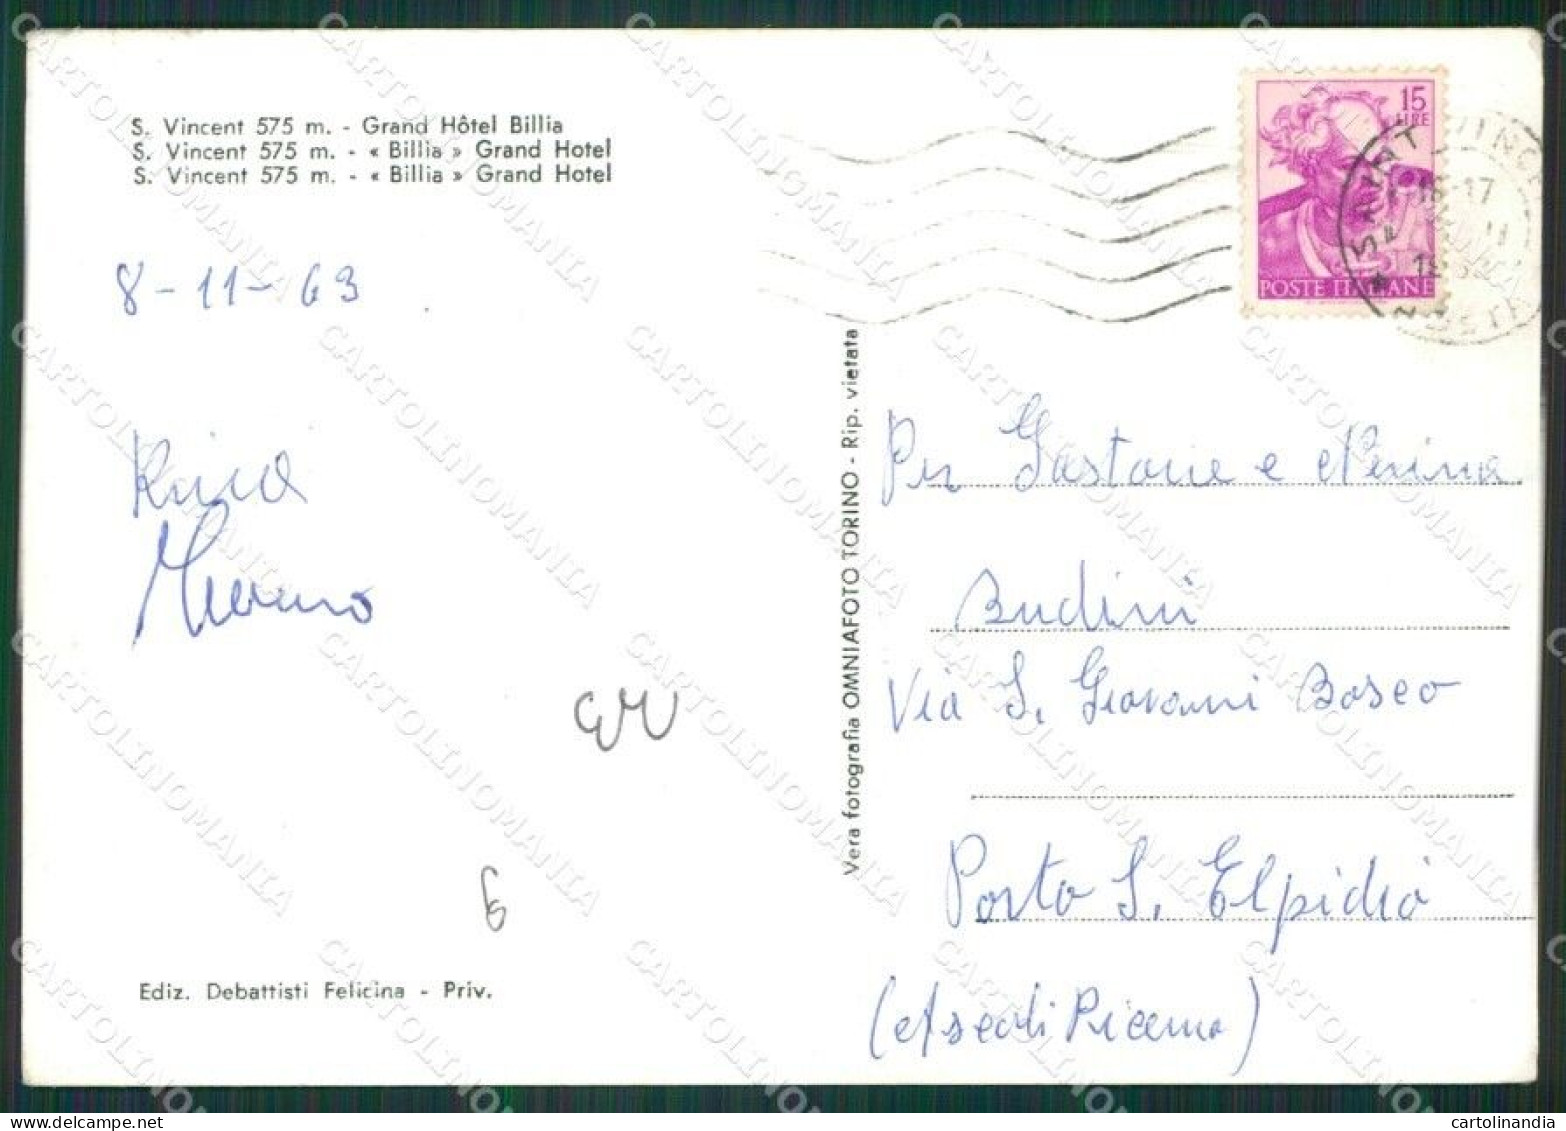 S. Vincent 575 m. - Grand Hôtel Billia
S. Vincent 575 m. - « Billia » Grand Hotel
S. Vincent 575 m. - « Billia » Grand Hotel
8-11-63
Ediz. Debattisti Felicina - Priv.
Vera fotografia OMNIAFOTO TORINO - Rip. vietata
15
LIRE
POSTE ITALIANE
16-17
Per Gastone e Nerina
Budini
Via S. Giovanni Bosco
Porto S. Elpidio
(Ascoli Piceno)
CARTOLINOMANIA
cartolinandia